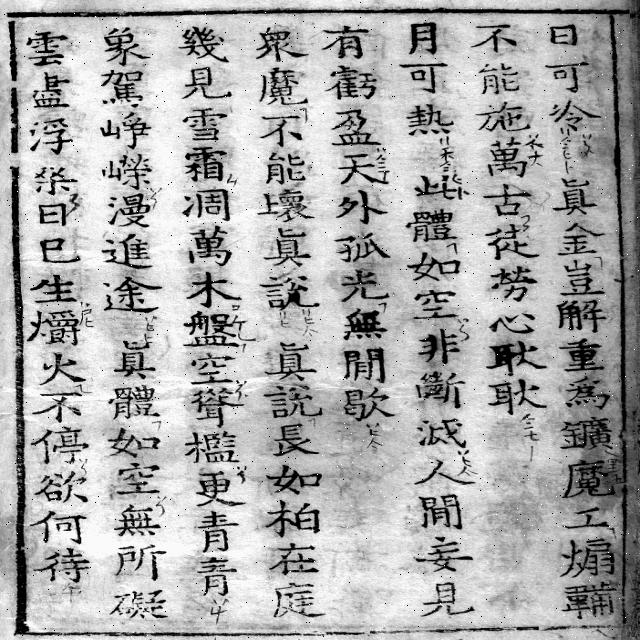 日可冷眞金豈解重爲鑛魔工煽鞴
不能施萬古徒勞心耿耿
月可熱此體如空非斷滅人閒妄見
有虧盈天外孤光無閒歇
衆魔不能壞眞說眞說長如柏在庭
幾見雪霜凋萬木盤空聳檻更青青
象駕崢嶸漫進途眞體如空無所礙
雲盡浮日巳生爝火不停欲何待